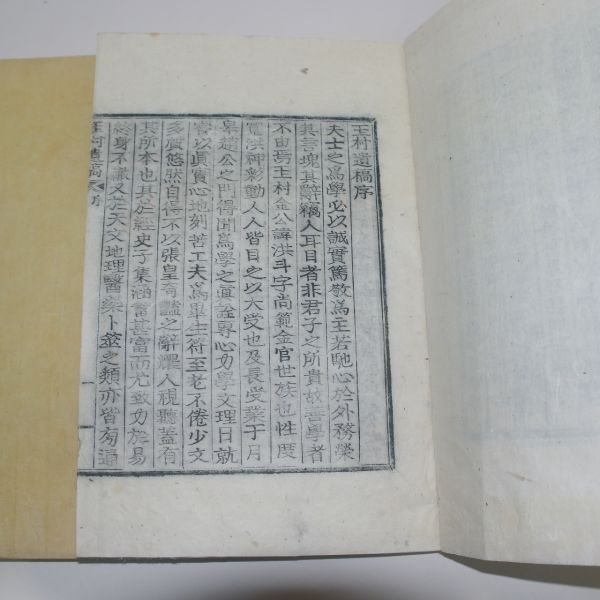 玉村遺稿序
夫士之爲學必以誠實篤敬爲主若馳心於外務榮
其言塊其辭竊人耳目者非君子之所貴故善學者
不由焉玉村金公諱洪斗字尚範金官世族也性度
寬洪神彩動人人皆目之以大受也及長受業于月
皐趙公之門得聞爲學之眞詮專心力學文理日就
嘗以眞實心地刻苦工夫爲畢生符至老不倦少文
多質悠然自得不以張皇奇豔之辭耀人視聽蓋有
其所本也其於經史子集涵畜甚富而尤致力於易
終身不讓又於天文地理醫藥卜筮之類亦皆旁通
玉村遺稿 序